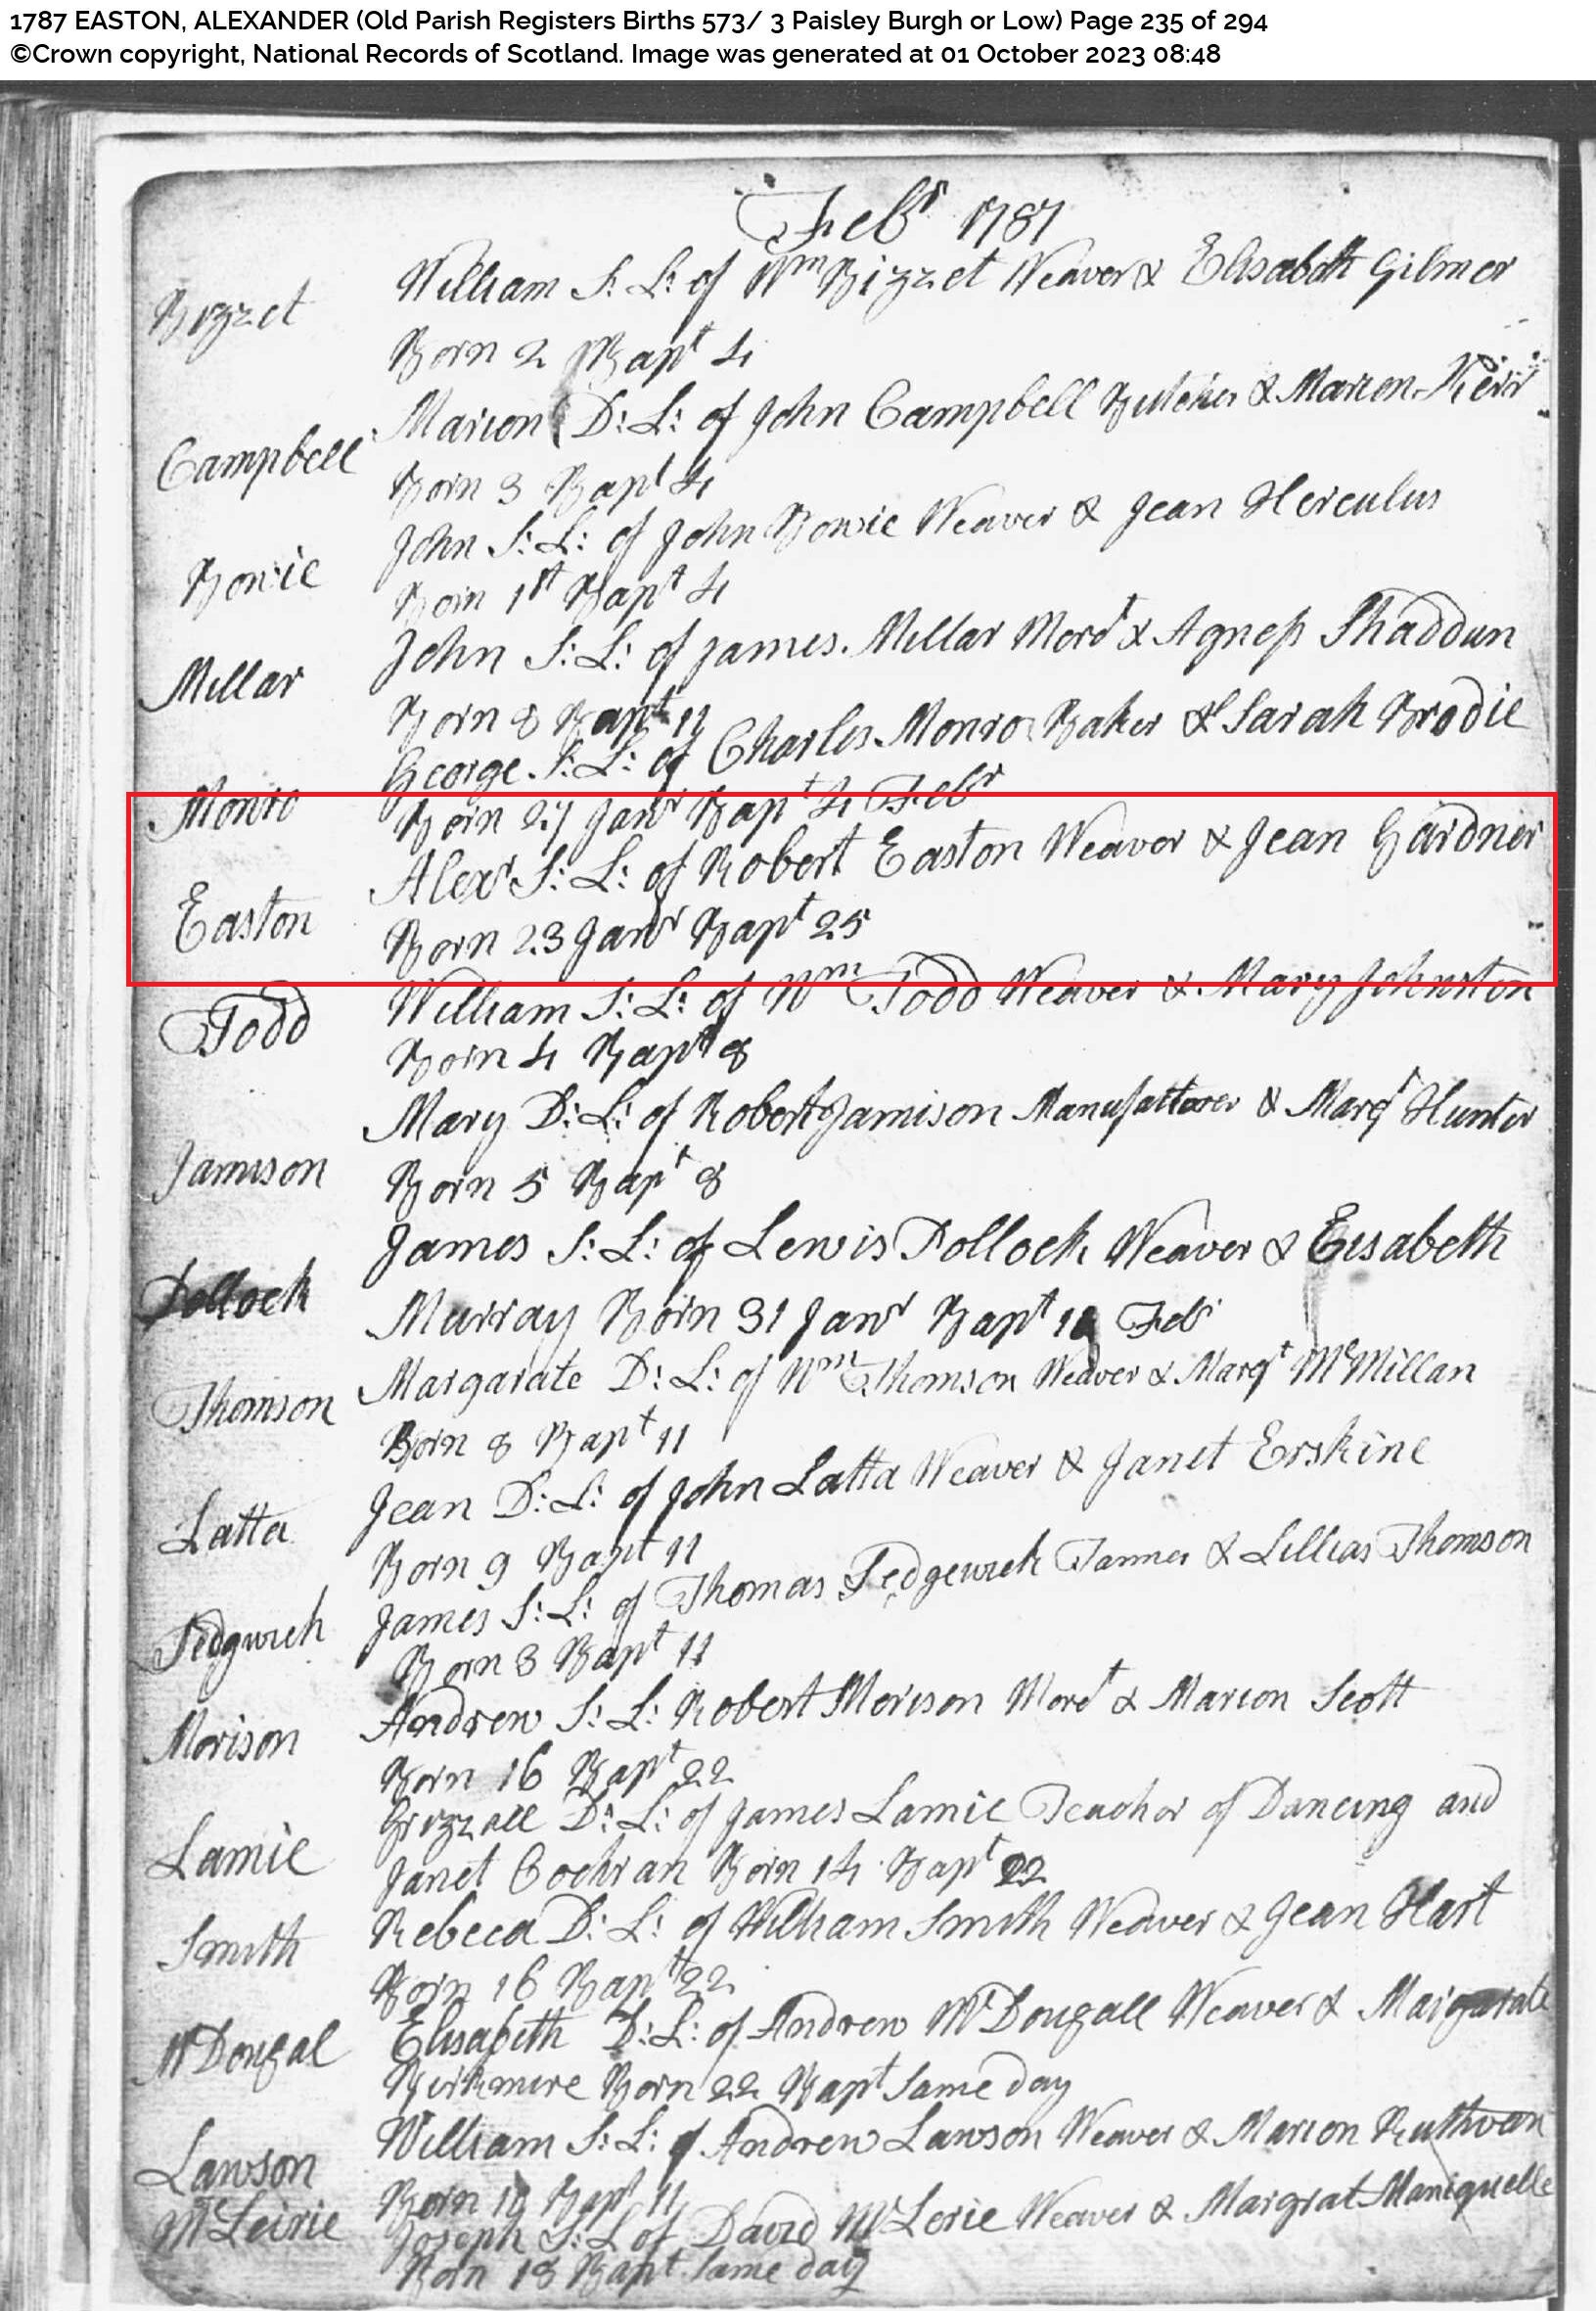 1787 EASTON, ALEXANDER (Old Parish Registers Births 573/ 3 Paisley Burgh or Low) Page 235 of 294
©Crown copyright, National Records of Scotland. Image was generated at 01 October 2023 08:48
Febr 1787
Bizzet William S: L: of Wm Bizzet Weaver & Elisabeth Gilmer
Born 2 Bapt 4
Campbell Marion D: L: of John Campbell Butcher & Marion Kerr
Born 3 Bapt 4
Bowie John S: L: of John Bowie Weaver & Jean Herculus
Born 1st Bapt 4
Millar John S: L: of James Millar Mercht & Agness Shaddun
Born 8 Bapt 11
George S: L: of Charles Monro Baker & Sarah Brodie
Monro Born 27 Janr Bapt 4 Febr
Alexr S: L: of Robert Easton Weaver & Jean Gardner
Easton Born 23 Janr Bapt 25
Todd William S: L: of Wm Todd Weaver & Mary Johnston
Born 4 Bapt 8
Mary D: L: of Robert Jamison Manufattorer & Margt Hunter
Jamison Born 5 Bapt 8
James S: L: of Lewis Pollock Weaver & Eisabeth
Pollock Murray Born 31 Janr Bapt Febr
Thomson Margarate D: L: of Wm Thomson Weaver & Margt McMillan
Born 8 Bapt 11
Latta Jean D: L: of John Latta Weaver & Janet Erskine
Born 9 Bapt 11
Sedgwich James S: L: of Thomas Sedgewich Tanner & Lillias Thomson
Born 8 Bapt 11
Morison Andrew S: L: Robert Morison Mercht & Marion Scott
Born 16 Bapt 22
Lamie Grizzall D: L: of James Lamie Teachor of Dancing and
Janet Cochran Born 14 Bapt 22
Smith Rebeca D: L: of William Smith Weaver & Jean Hart
Born 16 Bapt 22
McDougal Elisabeth D: L: of Andrew McDougall Weaver & Margarate
Kirkmire Born 22 Bapt same day
Lawson William S: L: of Andrew Lawson Weaver & Marion Ruthven
Born 10 Bapt 11
McLeirie Joseph S: L of David McLerie Weaver & Margrat Maniquelle
Born 18 Bapt same day